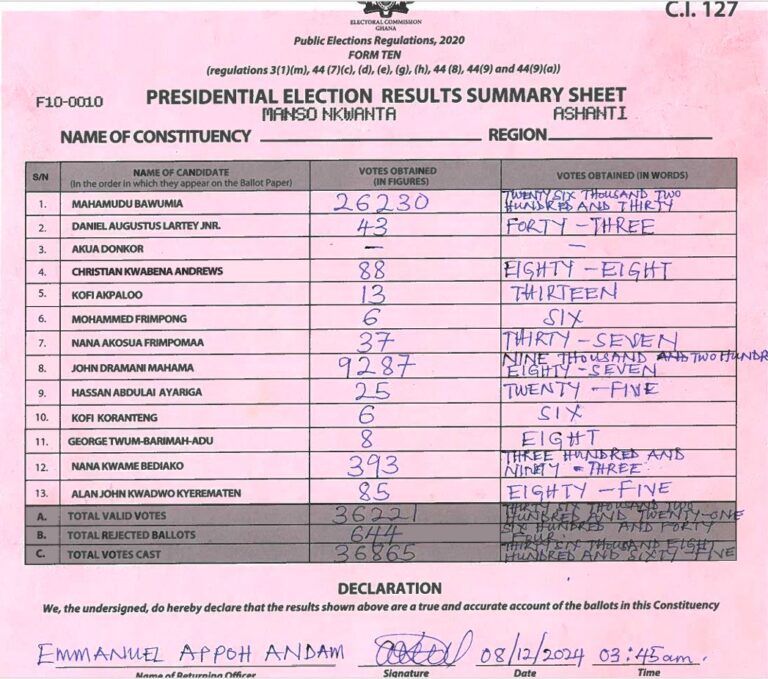 C.I. 127
ELECTORAL COMMISSION
GHANA
Public Elections Regulations, 2020
FORM TEN
(regulations 3(1)(m), 44 (7)(c), (d), (e), (g), (h), 44 (8), 44(9) and 44(9)(a))
F10-0010 PRESIDENTIAL ELECTION RESULTS SUMMARY SHEET
MANSO NKWANTA ASHANTI
NAME OF CONSTITUENCY REGION
S/N NAME OF CANDIDATE (In the order in which they appear on the Ballot Paper) VOTES OBTAINED (IN FIGURES) VOTES OBTAINED (IN WORDS)
1. MAHAMUDU BAWUMIA 26230 TWENTY SIX THOUSAND TWO
HUNDRED AND THIRTY
2. DANIEL AUGUSTUS LARTEY JNR. 43 FORTY-THREE
3. AKUA DONKOR — —
4. CHRISTIAN KWABENA ANDREWS 88 EIGHTY-EIGHT
5. KOFI AKPALOO 13 THIRTEEN
6. MOHAMMED FRIMPONG 6 SIX
7. NANA AKOSUA FRIMPOMAA 37 THIRTY-SEVEN
8. JOHN DRAMANI MAHAMA 9287 NINE THOUSAND AND TWO HUNDR
EIGHTY-SEVEN
9. HASSAN ABDULAI AYARIGA 25 TWENTY-FIVE
10. KOFI KORANTENG 6 SIX
11. GEORGE TWUM-BARIMAH-ADU 8 EIGHT
12. NANA KWAME BEDIAKO 393 THREE HUNDRED AND
NINTY-THREE
13. ALAN JOHN KWADWO KYEREMATEN 85 EIGHTY-FIVE
A. TOTAL VALID VOTES 36221 THIRTY SIX THOUSAND TWO
HUNDRED AND TWENTY-ONE
B. TOTAL REJECTED BALLOTS 644 SIX HUNDRED AND FORTY
FOUR.
C. TOTAL VOTES CAST 36865 THIRTY SIX THOUSAND EIGHT
HUNDRED AND SIXTY-FIVE
DECLARATION
We, the undersigned, do hereby declare that the results shown above are a true and accurate account of the ballots in this Constituency
EMMANUEL APPOH ANDAM 08/12/2024 03:45am.
Name of Returning Officer Signature Date Time